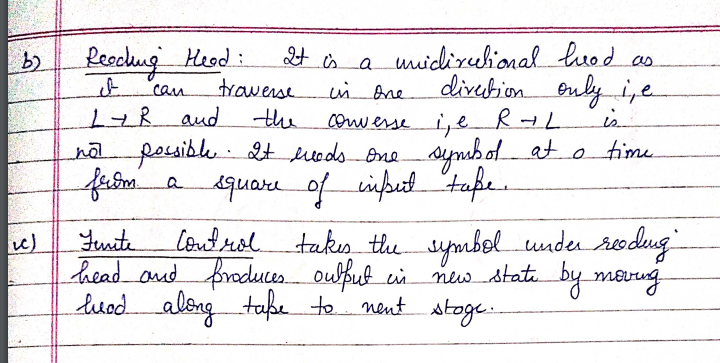 b) Reading Head : It is a unidirectional head as
it can traverse in one direction only i,e
L → R and the converse i,e R → L is
not possible. It reads one symbol at a time
from a square of input tape.
c) Finite Control takes the symbol under reading
head and produces output in new state by moving
head along tape to next stage.